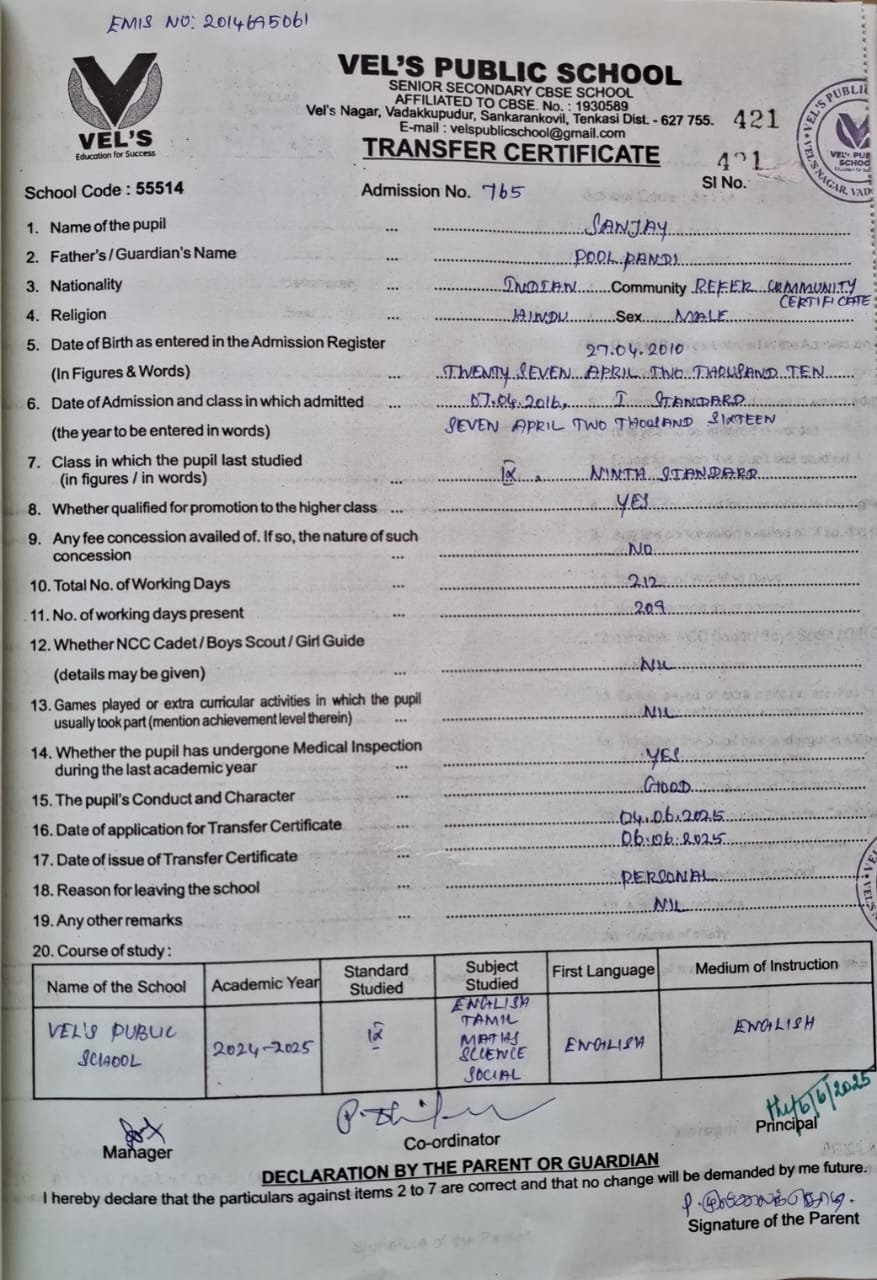 EMIS NO: 2014695061
VEL'S
Education for Success
VEL'S PUBLIC SCHOOL
SENIOR SECONDARY CBSE SCHOOL
AFFILIATED TO CBSE. No. : 1930589
Vel's Nagar, Vadakkupudur, Sankarankovil, Tenkasi Dist. - 627 755.
E-mail : velspublicschool@gmail.com
421
TRANSFER CERTIFICATE
421
Sl No.
School Code : 55514
Admission No. 765
1. Name of the pupil ... SANJAY
2. Father's / Guardian's Name ... POOL PANDI
3. Nationality ... INDIAN Community REFER COMMUNITY CERTIFICATE
4. Religion ... HINDU Sex MALE
5. Date of Birth as entered in the Admission Register 27.04.2010
(In Figures & Words) ... TWENTY SEVEN APRIL TWO THOUSAND TEN
6. Date of Admission and class in which admitted ... 07.04.2016, I STANDARD
(the year to be entered in words) SEVEN APRIL TWO THOUSAND SIXTEEN
7. Class in which the pupil last studied
(in figures / in words) ... IX . NINTH STANDARD
8. Whether qualified for promotion to the higher class ... YES
9. Any fee concession availed of. If so, the nature of such
concession ... NO
10. Total No. of Working Days ... 212
11. No. of working days present ... 209
12. Whether NCC Cadet / Boys Scout / Girl Guide
(details may be given) ... NIL
13. Games played or extra curricular activities in which the pupil
usually took part (mention achievement level therein) ... NIL
14. Whether the pupil has undergone Medical Inspection
during the last academic year ... YES
15. The pupil's Conduct and Character ... GOOD
16. Date of application for Transfer Certificate ... 04.06.2025
17. Date of issue of Transfer Certificate ... 06.06.2025
18. Reason for leaving the school ... PERSONAL
19. Any other remarks ... NIL
20. Course of study :
Name of the School Academic Year Standard Studied Subject Studied First Language Medium of Instruction
VEL'S PUBLIC SCHOOL 2024-2025 IX ENGLISH TAMIL MATHS SCIENCE SOCIAL ENGLISH ENGLISH
6/6/2025
Manager
Co-ordinator
Principal
DECLARATION BY THE PARENT OR GUARDIAN
I hereby declare that the particulars against items 2 to 7 are correct and that no change will be demanded by me future.
Signature of the Parent